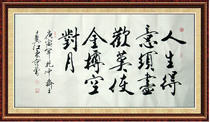 人生得
意須盡
歡莫使
金樽空
對月
庚寅年